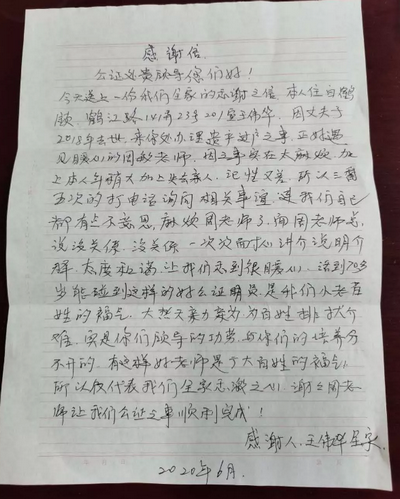 感谢信
公证处贵领导你们好！
今天送上一份我们全家的感谢之信 本人住白鹤
鹤江路141弄23号201室王伟华 因丈夫于
2018年去世 来你处办理遗产过户之事 正好遇
见暖心的周 老师 因之事实在太麻烦 加
上本人年龄大加上失去亲人 记性又差 所以三番
五次的打电话询问相关事宜 连我们自己
都有点不意思 麻烦周老师了 而周老师总
说没关系 没关系 一次次耐心讲介说明介
群 态度和谒 让我们感到很暖心 活到70多
岁能碰到这样的好公证明员是我们小老百
姓的福气 大楚天 为百姓排忧介
难 实是你们领导的功劳 与你们的培养分
不开的 有这样好老师是了大百姓的福气
所以仅代表我们全家感激之心 谢之周老
师让我们公证之事顺利完成！
感谢人 王伟华全家
2020年6月